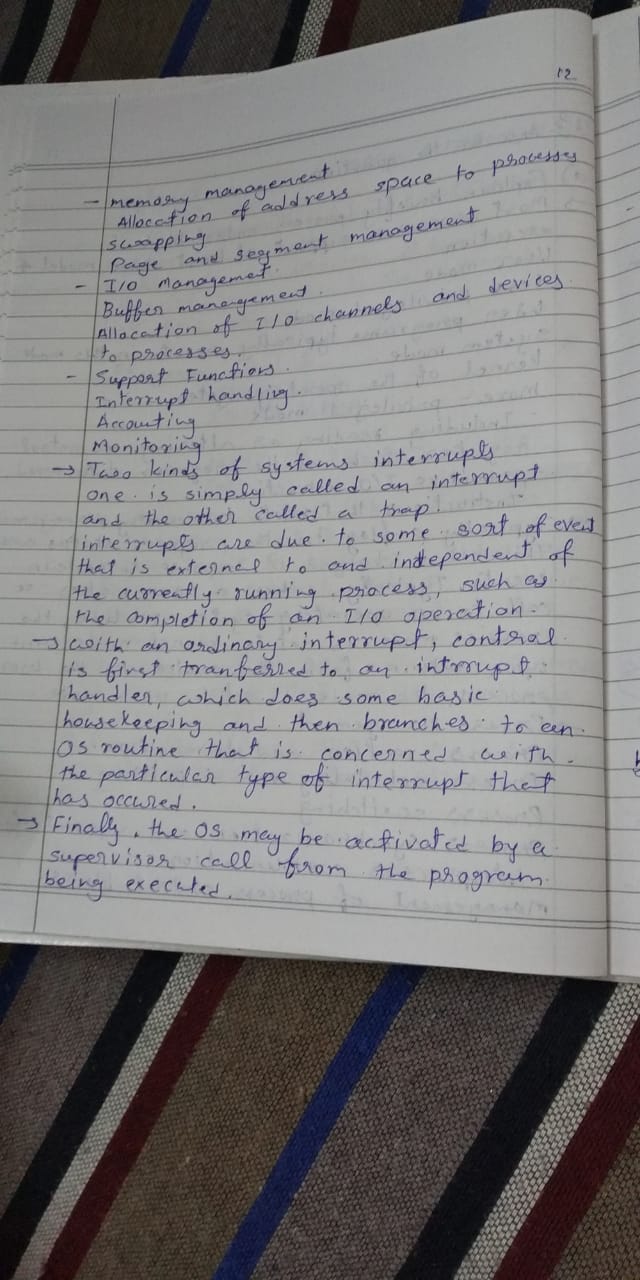 12
- memory management
Allocation of address space to processes
swapping
Page and segment management
- I/O Managemet
Buffer management.
Allocation of I/O channels and devices
to processes.
- Support Functions.
Interrupt handling.
Accounting
Monitoring
→ Two kinds of systems interrupts
one is simply called an interrupt
and the other called a trap.
interrupts are due to some sort of event
that is external to and independent of
the currently running process, such as
the completion of an I/O operation.
→ with an ordinary interrupt, control
is first tranferred to an intrrupt
handler, which does some basic
housekeeping and then branches to an
OS routine that is concerned with
the particular type of interrupt that
has occured.
→ Finally, the OS may be activated by a
supervisor call from the program
being executed.